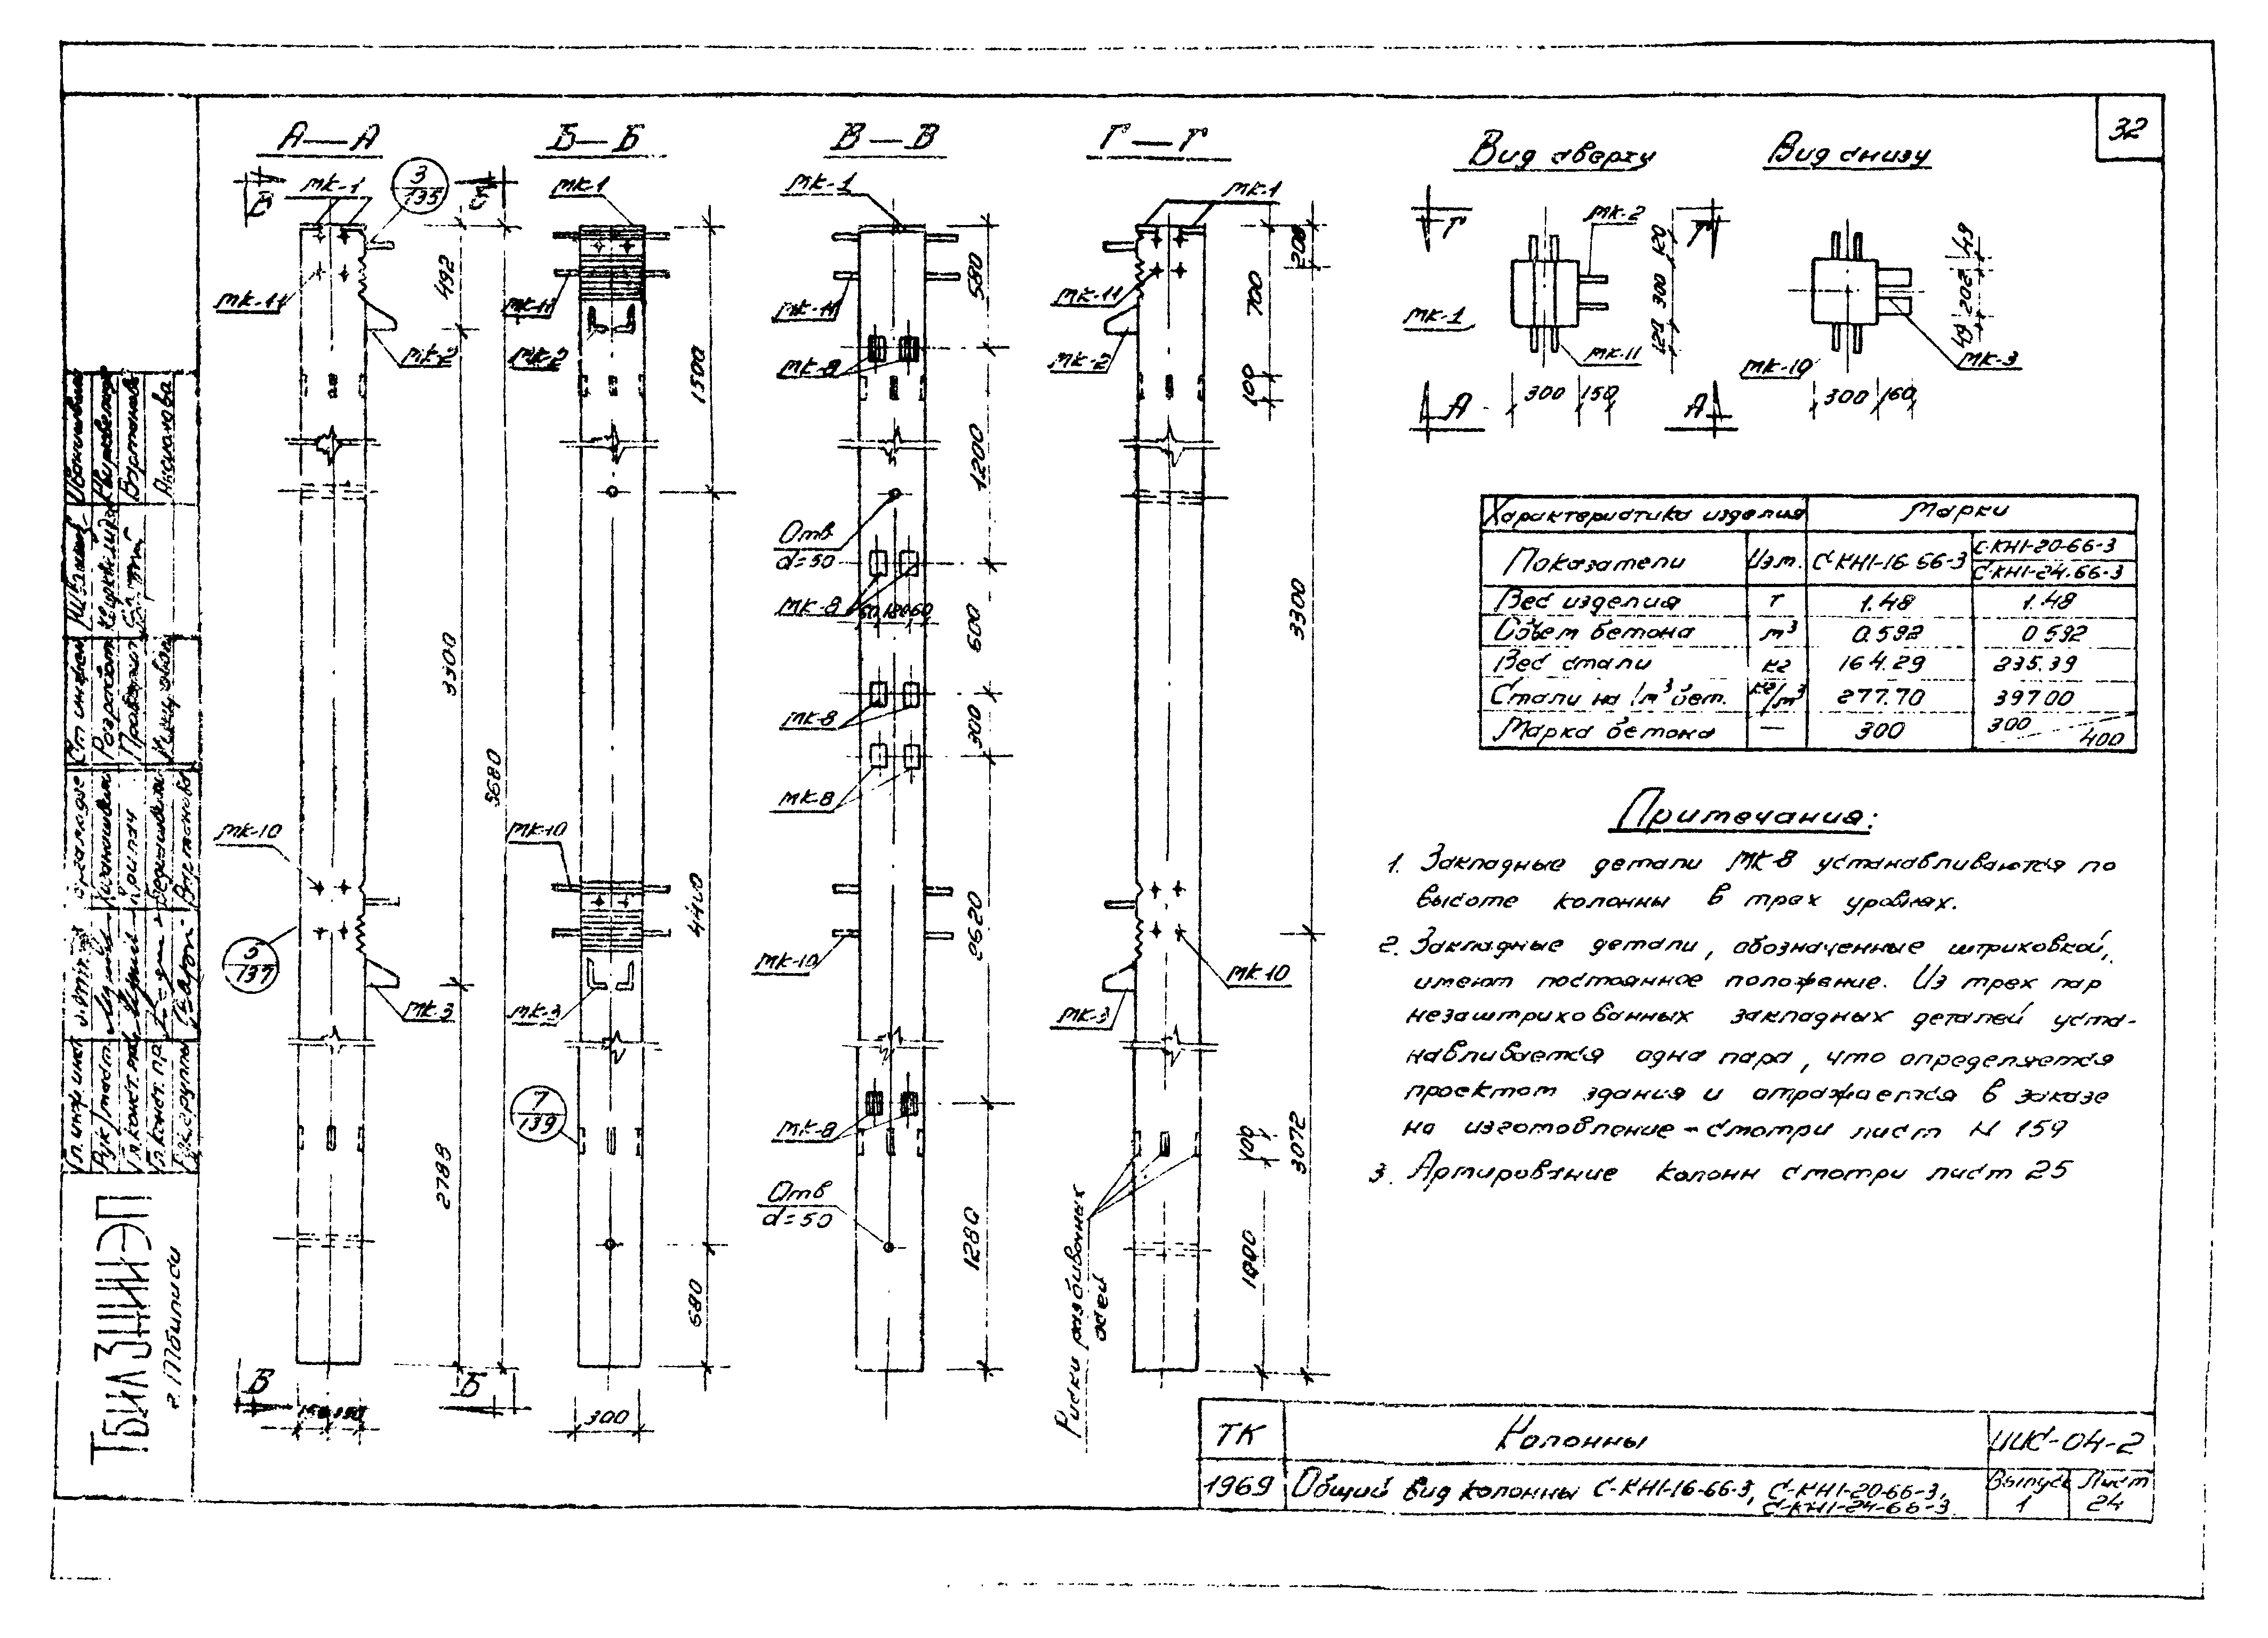 32
А—А
Б—Б
В—В
Г—Г
Вид сверху
Вид снизу
МК-1
3
135
В
Б
МК-11
МК-2
492
3300
2788
5680
МК-10
5
137
МК-3
В
Б
150 150
МК-1
МК-11
МК-2
1500
4400
680
МК-10
МК-3
7
139
300
МК-1
МК-11
МК-8
580
1200
Отв
d=50
МК-8
60 180 60
600
МК-8
300
МК-8
2620
МК-10
МК-8
Отв
d=50
1280
МК-1
МК-11
МК-2
208
700
100
3300
МК-10
МК-3
100
3072
1000
Риски разбивочных
осей
Г
Г
МК-2
МК-1
МК-11
120
300
120
300 150
А
А
МК-10
МК-3
49
202
49
300 160
Характеристика изделия Марки
Показатели Изм. С-КН1-16-66-3 С-КН1-20-66-3
С-КН1-24-66-3
Вес изделия т 1.48 1.48
Объем бетона м³ 0.592 0 592
Вес стали кг 164.29 235.39
Стали на 1м³ бет. кг/м³ 277.70 397 00
Марка бетона — 300 300 400
Примечания:
1. Закладные детали МК-8 устанавливаются по
высоте колонны в трех уровнях.
2. Закладные детали, обозначенные штриховкой,
имеют постоянное положение. Из трех пар
незаштрихованных закладных деталей уста-
навливается одна пара, что определяется
проектом здания и отражается в заказе
на изготовление - смотри лист N 159
3. Армирование колонн смотри лист 25
ТбилЗНИИЭП
г. Тбилиси
ТК Колонны ИИС-04-2
1969 Общий вид колонны С-КН1-16-66-3, С-КН1-20-66-3,
С-КН1-24-66-3
Выпуск 1
Лист 24